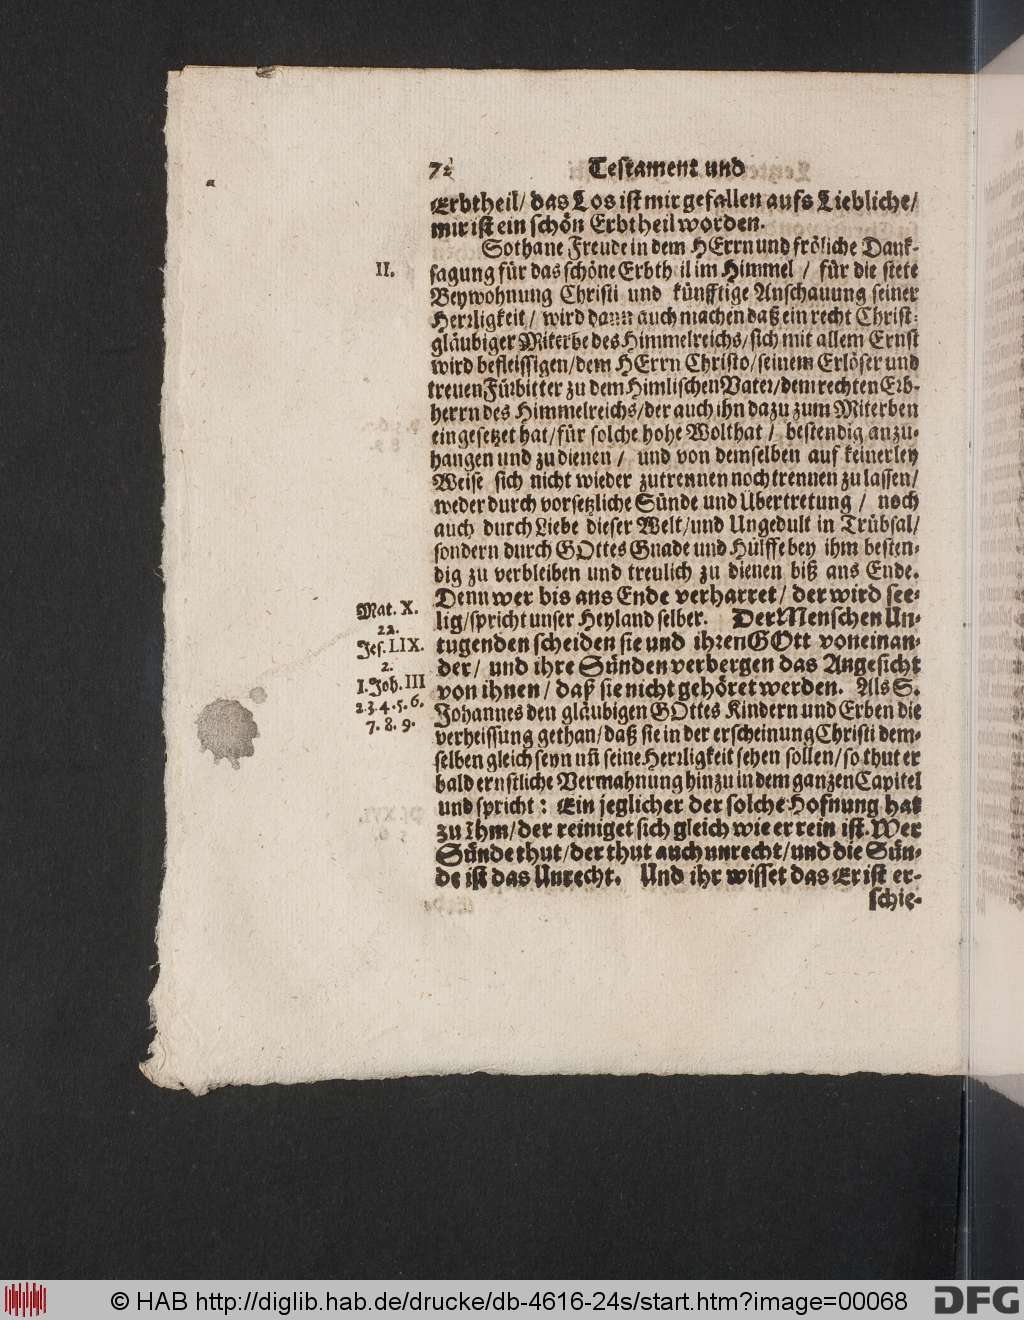 72 Testament und
Erbtheil/ das Los ist mir gefallen aufs Liebliche/
mir ist ein schön Erbtheil worden.
Sothane Freude in dem HErrn und fröliche Dank-
II.
sagung für das schöne Erbth il im Himmel / für die stete
Beywohnung Christi und künfftige Anschauung seiner
Herrligkeit/ wird dann auch machen daß ein recht Christ-
gläubiger Miterbe des Himmelreichs/ sich mit allem Ernst
wird befleissigen/dem HErrn Christo/seinem Erlöser und
treuen Fürbitter zu dem Himlischen Vater/dem rechten Erb-
herrn des Himmelreichs/der auch ihn dazu zum Miterben
eingesetzet hat/für solche hohe Wolthat / bestendig anzu-
hangen und zu dienen / und von demselben auf keinerley
Weise sich nicht wieder zutrennen noch trennen zu lassen/
weder durch vorsetzliche Sünde und Ubertretung / noch
auch durch Liebe dieser Welt/und Ungedult in Trübsal/
sondern durch GOttes Gnade und Hülffe bey ihm besten-
dig zu verbleiben und treulich zu dienen biß ans Ende.
Denn wer bis ans Ende verharret/ der wird see-
Mat. X.
22.
lig/spricht unser Heyland selber. Der Menschen Un-
Jes. LIX.
2.
tugenden scheiden sie und ihren GOtt voneinan-
der/ und ihre Sünden verbergen das Angesicht
I. Joh. III
2.3.4.5.6.
7. 8. 9.
von ihnen/ daß sie nicht gehöret werden. Als S.
Johannes den gläubigen GOttes Kindern und Erben die
verheissung gethan/daß sie in der erscheinung Christi dem-
selben gleich seyn uñ seine Herrligkeit sehen sollen/so thut er
bald ernstliche Vermahnung hinzu in dem ganzen Capitel
und spricht: Ein jeglicher der solche Hofnung hat
zu Ihm/der reiniget sich gleich wie er rein ist. Wer
Sünde thut/der thut auch unrecht/und die Sün-
de ist das Unrecht. Und ihr wisset das Er ist er-
schie-
© HAB http://diglib.hab.de/drucke/db-4616-24s/start.htm?image=00068
DFG